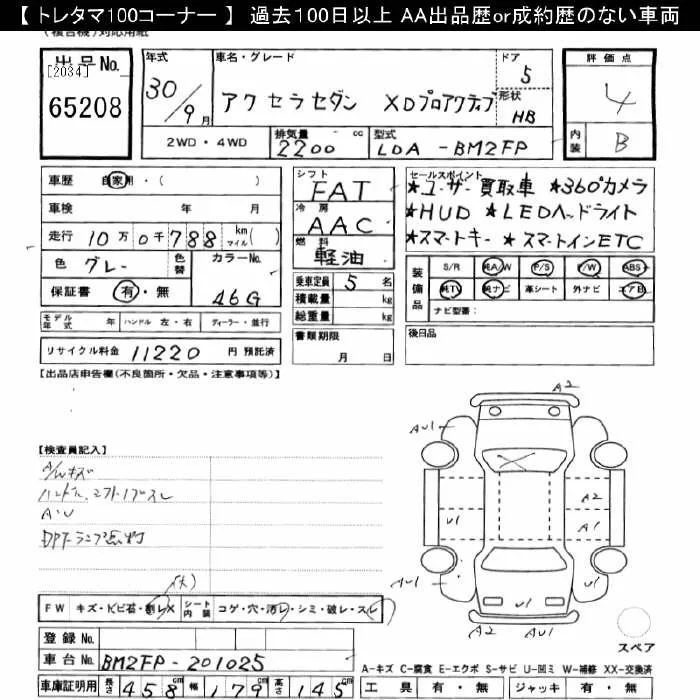 【 トレタマ100コーナー 】 過去100日以上 AA出品歴or成約歴のない車両
(複合機)対応用紙
出品No.
[2034]
65208
年式
30/9月
車名・グレード
アクセラセダン XDプロアクティブ
ドア
5
形状
HB
評価点
4
内装
B
2WD・4WD
排気量
2200 cc
型式
LDA-BM2FP
車歴 自家用・( )
車検 年 月
走行 10万0千788 km マイル( )
色 グレー 色替 カラーNo. 46G
保証書 有・無
シフト
FAT
冷房
AAC
燃料
軽油
乗車定員 5 名
積載量 kg
総重量 kg
書類期限
月 日
セールスポイント
★ユーザー買取車 ★360°カメラ
★HUD ★LEDヘッドライト
★スマートキー ★スマートインETC
装備品
S/R 純A/W P/S P/W ABS
純TV 純ナビ 革シート 外ナビ エアB
ナビ型番:
後日品
モデル年式 年 ハンドル 左・右 ディーラー・並行
リサイクル料金 11220 円 預託済
【出品店申告欄(不良箇所・欠品・注意事項等)】
【検査員記入】
A/Wキズ
ハンドル、シフトノブスレ
A・U
DPFランプ点灯
(大)
FW キズ・トビ石・割レX シート内装 コゲ・穴・汚レ・シミ・破レ・スレ
登録No.
車台No. BM2FP-201025
車庫証明用 長さ 458cm 幅 179cm 高さ 145cm
A2
AU1
X
U1
A2
A1
AU1
U1
U1
A2
AU1
スペア
A-キズ C-腐食 E-エクボ S-サビ U-凹ミ W-補修 XX-交換済
工具 有・無 ジャッキ 有・無